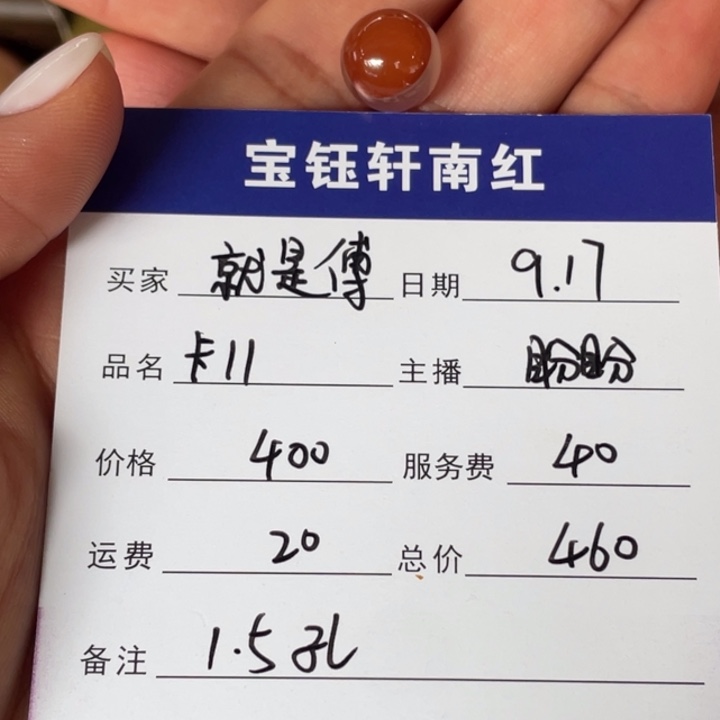 宝钰轩南红
买家 就是傅 日期 9.17
品名 卡11 主播 盼盼
价格 400 服务费 40
运费 20 总价 460
备注 1.5孔